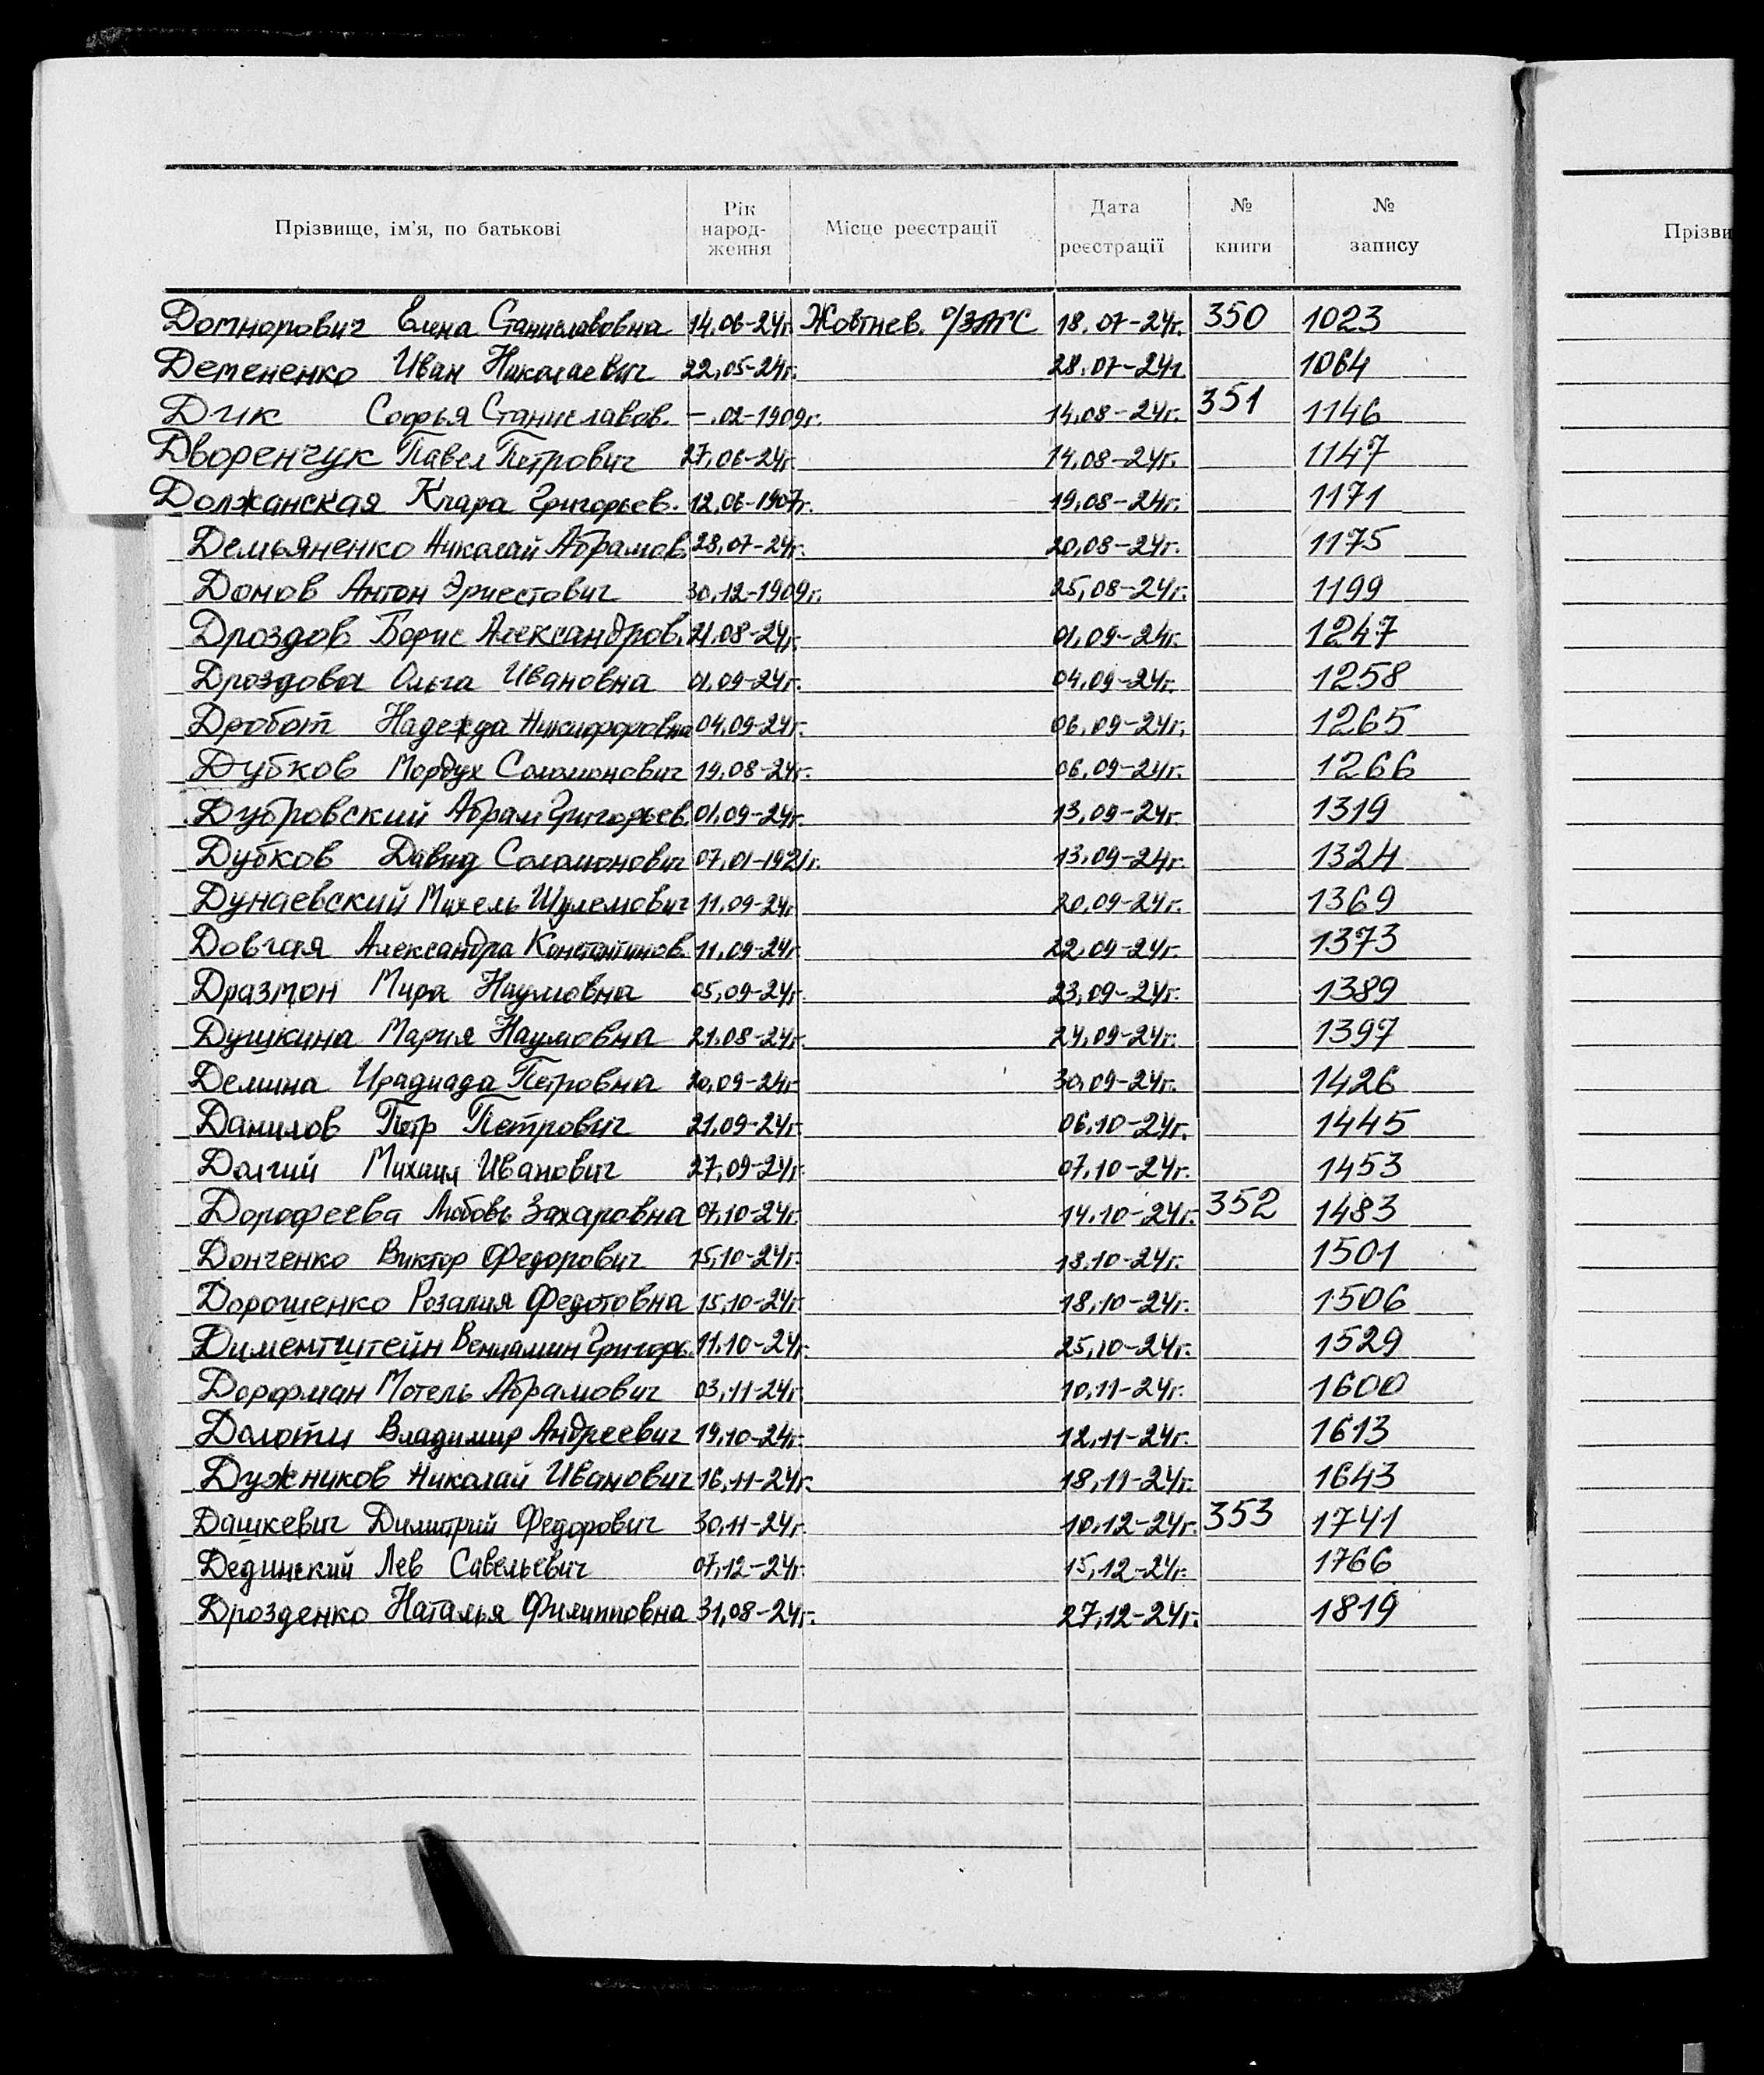 Прізвище, ім'я, по батькові Рік народ-ження Місце реєстрації Дата реєстрації № книги № запису Прізви
Домнорович Елена Станиславовна 14.06-24г. Жовтнев. о/ЗАГС 18.07-24г. 350 1023
Демененко Иван Николаевич 22.05-24г. 28.07-24г. 1064
Дик Софья Станиславов. -.02-1909г. 14.08-24г. 351 1146
Дворенчук Павел Петрович 27.06-24г. 14.08-24г. 1147
Должанская Клара Григорьев. 12.06-1907г. 19.08-24г. 1171
Демьяненко Николай Абрамов. 28.07-24г. 20.08-24г. 1175
Домов Антон Эрнестович 30.12-1909г. 25.08-24г. 1199
Дроздов Борис Александров. 21.08-24г. 01.09-24г. 1247
Дроздова Ольга Ивановна 01.09-24г. 04.09-24г. 1258
Дробот Надежда Никифоровна 04.09-24г. 06.09-24г. 1265
Дубков Мордух Соломонович 19.08-24г. 06.09-24г. 1266
Дубровский Абрам Григорьев. 01.09-24г. 13.09-24г. 1319
Дубков Давид Соломонович 07.01-1921г. 13.09-24г. 1324
Дунаевский Михель Шулемович 11.09-24г. 20.09-24г. 1369
Довгая Александра Константинов. 11.09-24г. 22.09-24г. 1373
Дразмон Мира Наумовна 05.09-24г. 23.09-24г. 1389
Душкина Мария Наумовна 21.08-24г. 24.09-24г. 1397
Демина Ирадиада Петровна 20.09-24г. 30.09-24г. 1426
Данилов Петр Петрович 21.09-24г. 06.10-24г. 1445
Долгий Михаил Иванович 27.09-24г. 07.10-24г. 1453
Дорофеева Любовь Захаровна 07.10-24г. 14.10-24г. 352 1483
Донченко Виктор Федорович 15.10-24г. 18.10-24г. 1501
Дорошенко Розалия Федотовна 15.10-24г. 18.10-24г. 1506
Диментштейн Вениамин Григорь. 11.10-24г. 25.10-24г. 1529
Дорфман Мотель Абрамович 03.11-24г. 10.11-24г. 1600
Долоти Владимир Андреевич 19.10-24г. 12.11-24г. 1613
Дужников Николай Иванович 16.11-24г. 18.11-24г. 1643
Дашкевич Димитрий Федорович 30.11-24г. 10.12-24г. 353 1741
Дединский Лев Савельевич 07.12-24г. 15.12-24г. 1766
Дрозденко Наталья Филипповна 31.08-24г. 27.12-24г. 1819